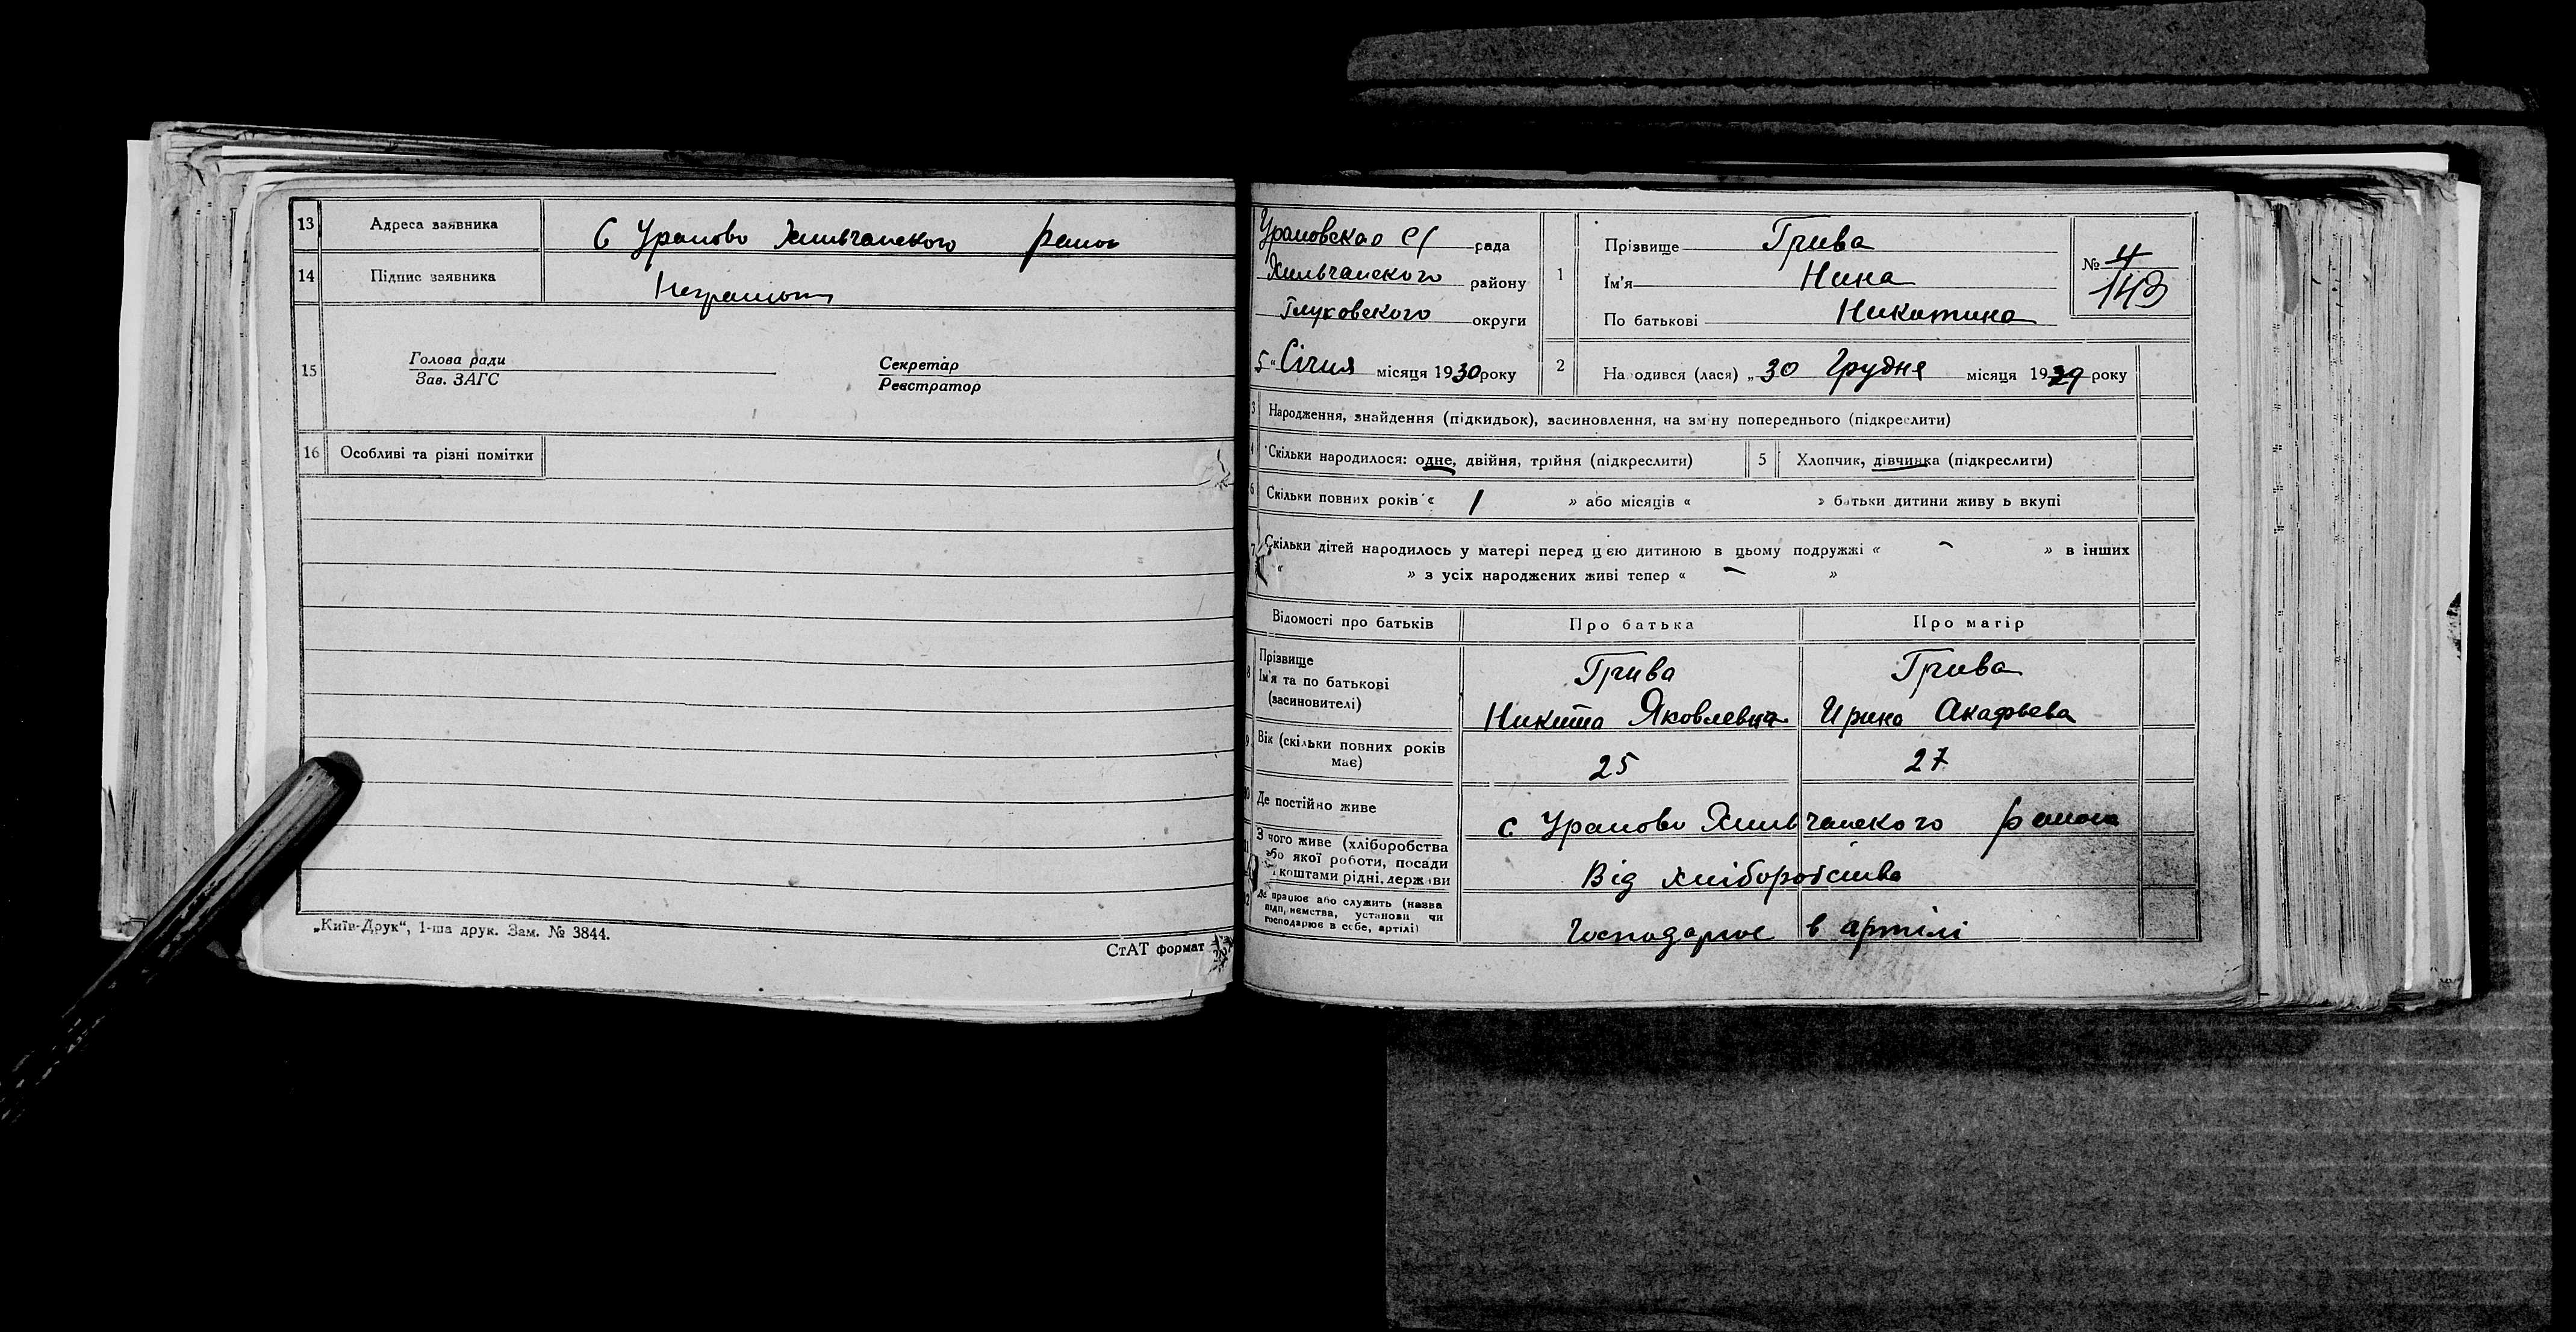 13 Адреса заявника С Ураново Хильчанского район
14 Підпис заявника Неграмот
15 Голова ради Секретар
Зав. ЗАГС Реєстратор
16 Особливі та різні помітки
„Київ-Друк“, 1-ша друк. Зам. № 3844.
СтАТ формат
Урановская с/ рада
Хильчанского району
Глуховского округи
5 “ Січня місяця 1930 року
1 Прізвище Грива
Ім'я Нина
По батькові Никитина
№ 4
143
2 Народився (лася) „ 30 Грудня місяця 1929 року
3 Народження, знайдення (підкидьок), засиновлення, на зміну попереднього (підкреслити)
4 Скільки народилося: одне, двійня, трійня (підкреслити) 5 Хлопчик, дівчинка (підкреслити)
6 Скільки повних років « 1 » або місяців « » батьки дитини живуть вкупі
7 Скільки дітей народилось у матері перед цією дитиною в цьому подружжі « - » в інших
« » з усіх народжених живі тепер « - »
Відомості про батьків Про батька Про матір
8 Прізвище Грива Грива
Ім'я та по батькові
(засиновителі) Никита Яковлевич Ирина Акафьева
9 Вік (скільки повних років
має) 25 27
10 Де постійно живе с Ураново Хильчанского района
11 З чого живе (хліборобства
або якої роботи, посади
коштами рідні, держави Від хліборобства
12 Де працює або служить (назва
підприємства, установи чи
господарює в себе, артілі) Господарює в артілі